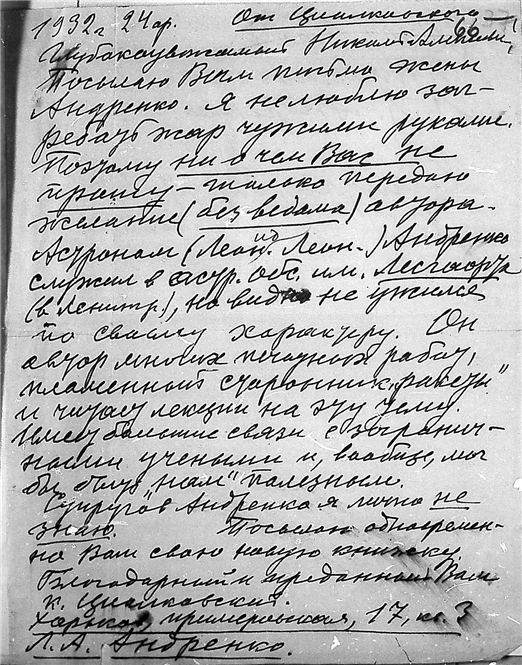 1932 г 24 ap. От Циолковского
66
Глубокоуважаемый Николай
Посылаю Вам письмо жены
Андренко. Я не люблю заг-
ребать жар чужими руками.
Поэтому ни о чем Вас не
прошу – только передаю
желание (без ведома) автора.
Астроном (Леонид Леон.) Андренко
служил в астр. обс. им. Лесгафта
(в Ленингр.), но видно не ужился
по своему характеру. Он
автор многих печатных работ,
пламенный сторонник „ракеты"
и читает лекции на эту тему.
Имеет большие связи с загранич-
ными учеными и, вообще, мог
бы быть „нам" полезным.
Супругов Андренко я лично не
знаю. Посылаю одновремен-
но Вам свою новую книжку.
Благодарный и преданный Вам
К. Циолковский.
Харьков, 17, кв. 3
Л. А. Андренко.